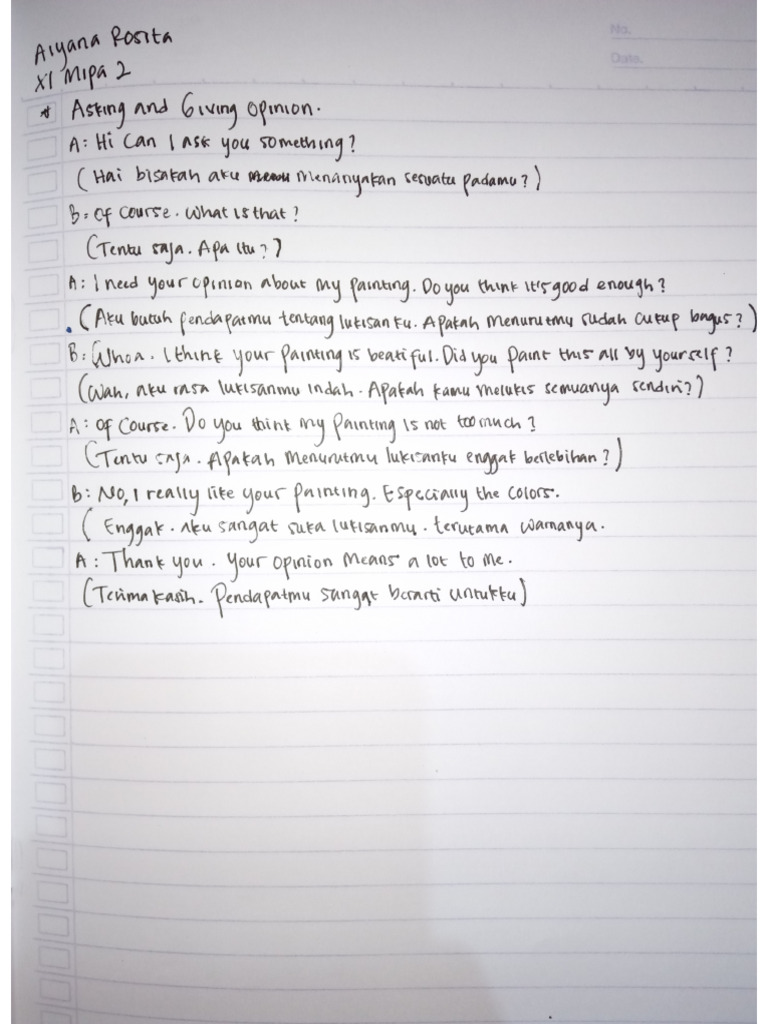 No.
Date.
Aiyana Rosita
XI Mipa 2
* Asking and Giving Opinion.
A: Hi Can I ask you something?
(Hai bisakah aku menanyakan sesuatu padamu?)
B: Of Course. What is that?
(Tentu saja. Apa itu?)
A: I need your opinion about my painting. Do you think it's good enough?
(Aku butuh pendapatmu tentang lukisanku. Apakah menurutmu sudah cukup bagus?)
B: Whoa. I think your painting is beatiful. Did you paint this all by yourself?
(Wah, aku rasa lukisanmu indah. Apakah kamu melukis semuanya sendiri?)
A: Of Course. Do you think my painting is not too much?
(Tentu saja. Apakah menurutmu lukisanku enggak berlebihan?)
B: No, I really like your painting. Especially the colors.
(Enggak. aku sangat suka lukisanmu. terutama warnanya.
A: Thank you. Your opinion means a lot to me.
(Terima kasih. Pendapatmu sangat berarti untukku)